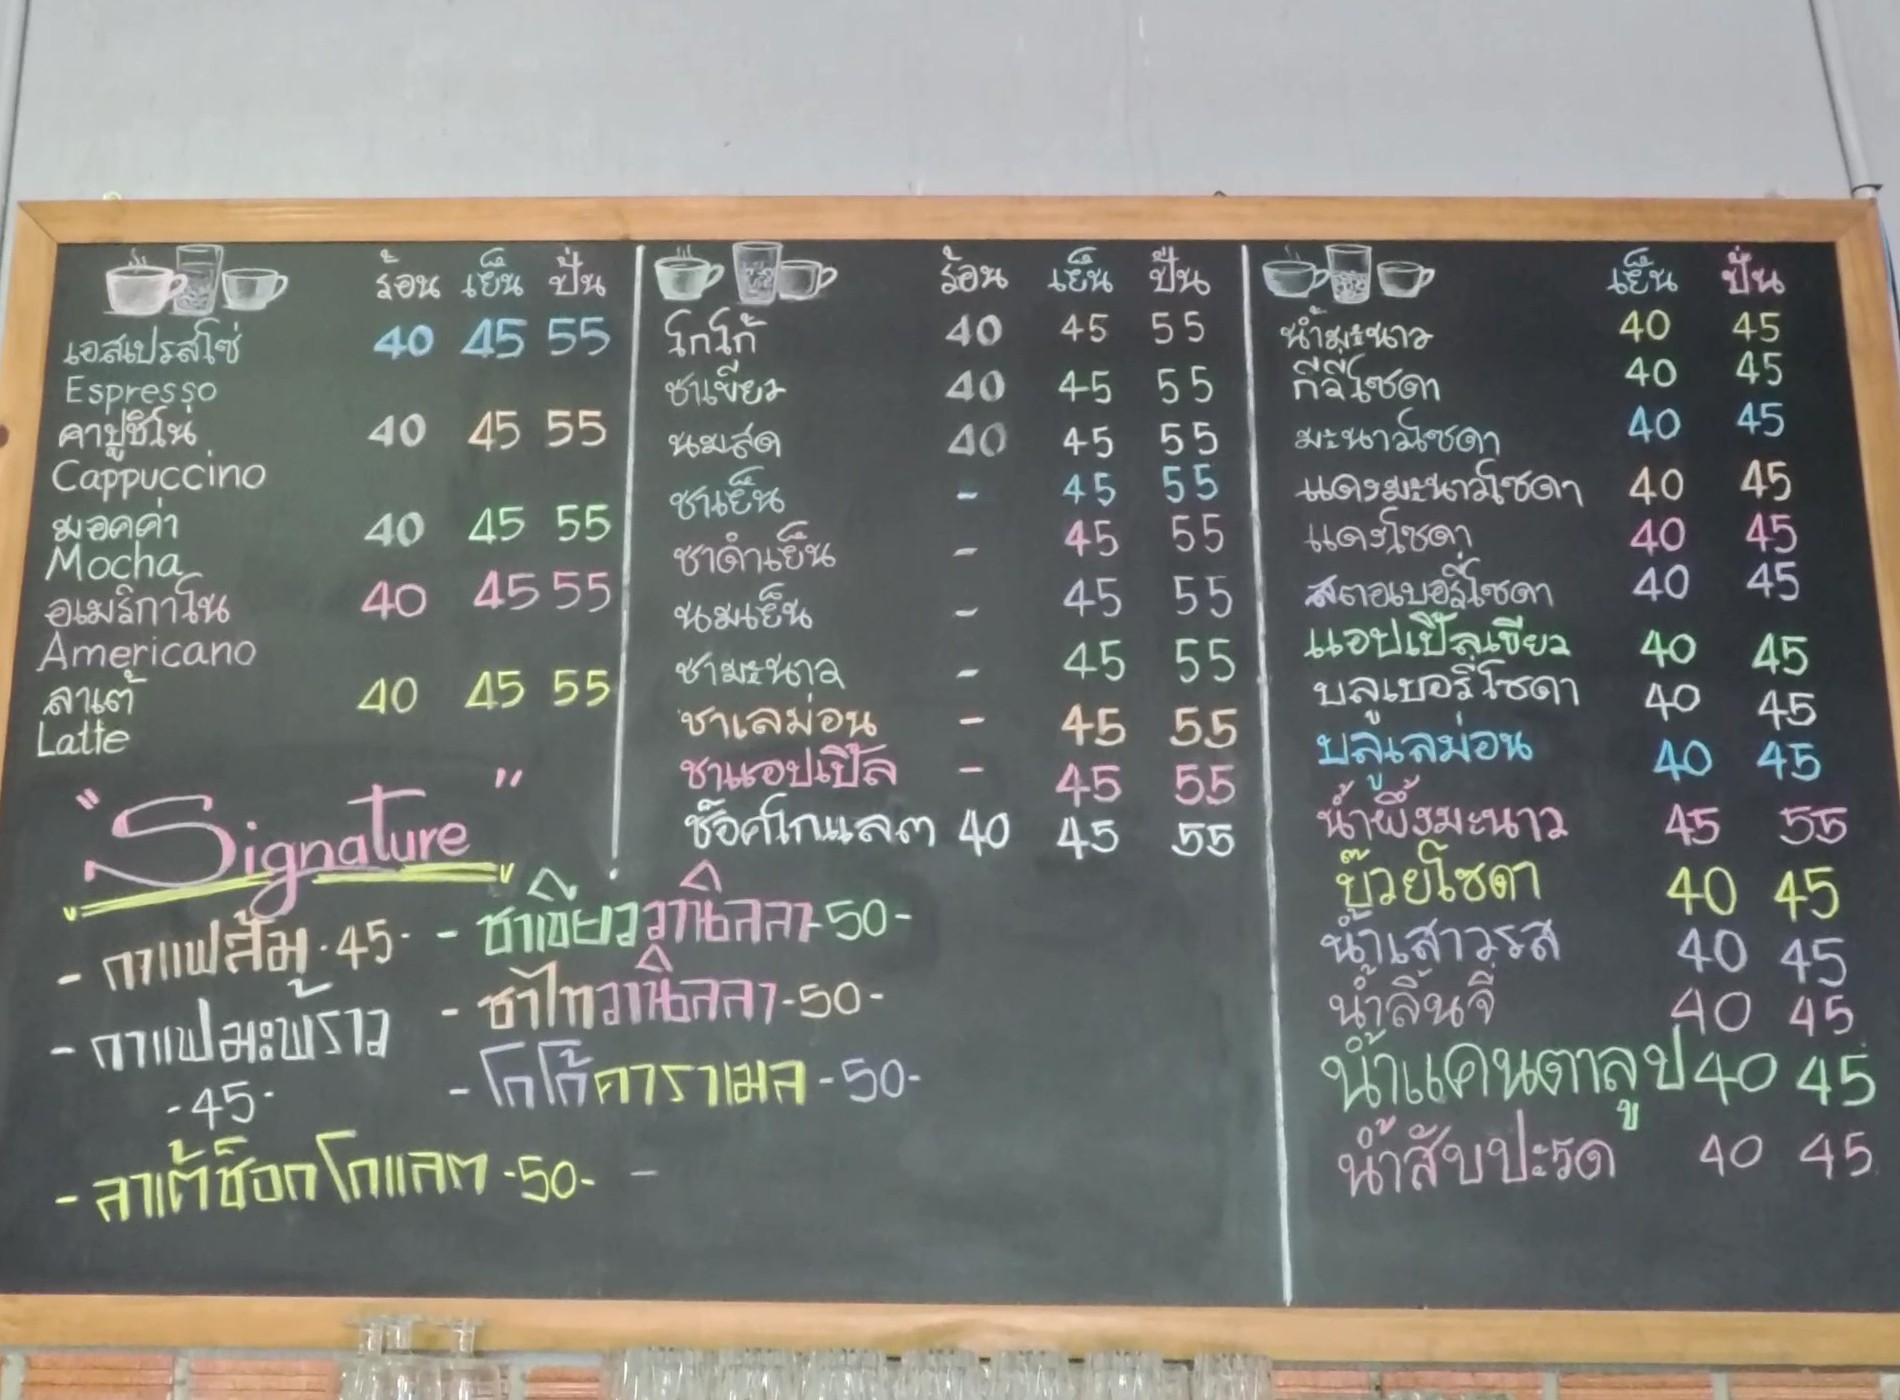 ร้อน เย็น ปั่น
เอสเปรสโซ่ 40 45 55
Espresso
คาปูชิโน่ 40 45 55
Cappuccino
มอคค่า 40 45 55
Mocha
อเมริกาโน 40 45 55
Americano
ลาเต้ 40 45 55
Latte
ร้อน เย็น ปั่น
โกโก้ 40 45 55
ชาเขียว 40 45 55
นมสด 40 45 55
ชาเย็น - 45 55
ชาดำเย็น - 45 55
นมเย็น - 45 55
ชามะนาว - 45 55
ชาเลม่อน - 45 55
ชาแอปเปิ้ล - 45 55
ช็อคโกแลต 40 45 55
"Signature"
- กาแฟส้ม -45-
- กาแฟมะพร้าว
-45-
- ลาเต้ช็อกโกแลต -50- -
- ชาเขียววานิลลา -50-
- ชาไทวานิลลา -50-
- โกโก้คาราเมล -50-
เย็น ปั่น
น้ำมะนาว 40 45
กีวี่โซดา 40 45
มะนาวโซดา 40 45
แดงมะนาวโซดา 40 45
แดงโซดา 40 45
สตอเบอรี่โซดา 40 45
แอปเปิ้ลเขียว 40 45
บลูเบอรี่โซดา 40 45
บลูเลม่อน 40 45
น้ำผึ้งมะนาว 45 55
บ๊วยโซดา 40 45
น้ำเสาวรส 40 45
น้ำลิ้นจี่ 40 45
น้ำแคนตาลูป 40 45
น้ำสับปะรด 40 45